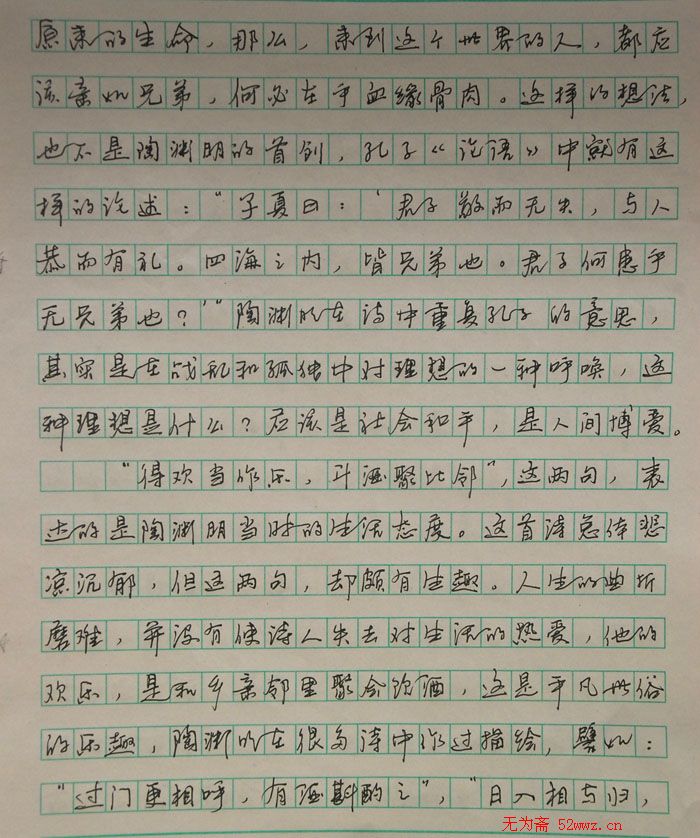 原来的生命，那么，来到这个世界的人，都应
该亲如兄弟，何必在乎血缘骨肉。这样的想法，
也不是陶渊明的首创，孔子《论语》中就有这
样的论述：“子夏曰：‘君子敬而无失，与人
恭而有礼。四海之内，皆兄弟也。君子何患乎
无兄弟也？’”陶渊明在诗中重复孔子的意思，
其实是在战乱和孤独中对理想的一种呼唤，这
种理想是什么？应该是社会和平，是人间博爱。
“得欢当作乐，斗酒聚比邻”，这两句，表
达的是陶渊明当时的生活态度。这首诗总体悲
凉沉郁，但这两句，却颇有生趣。人生的曲折
磨难，并没有使诗人失去对生活的热爱，他的
欢乐，是和乡亲邻里聚会饮酒，这是平凡世俗
的乐趣，陶渊明在很多诗中作过描绘，譬如：
“过门更相呼，有酒斟酌之”，“日入相与归，
无为斋 52wwz.cn